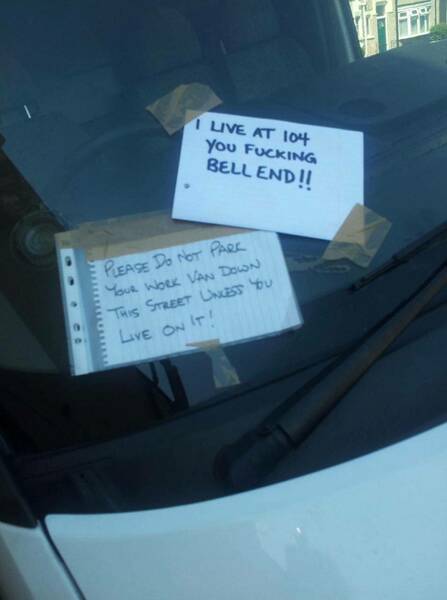 I LIVE AT 104
YOU FUCKING
BELLEND!!
PLEASE DO NOT PARK
YOUR WORK VAN DOWN
THIS STREET UNLESS YOU
LIVE ON IT!